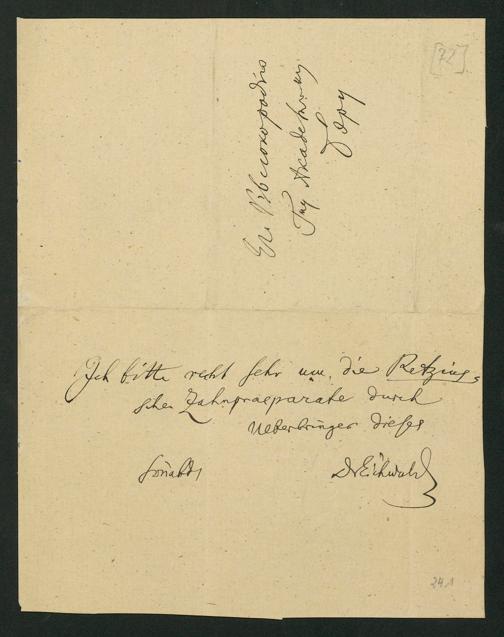 [72]
Его Высокородию
Гну Академику
Бэру
Ich bitte recht sehr um die Retzius-
schen Zahnpraeparate durch
Ueberbringer dieses
DrEichwald
24.1